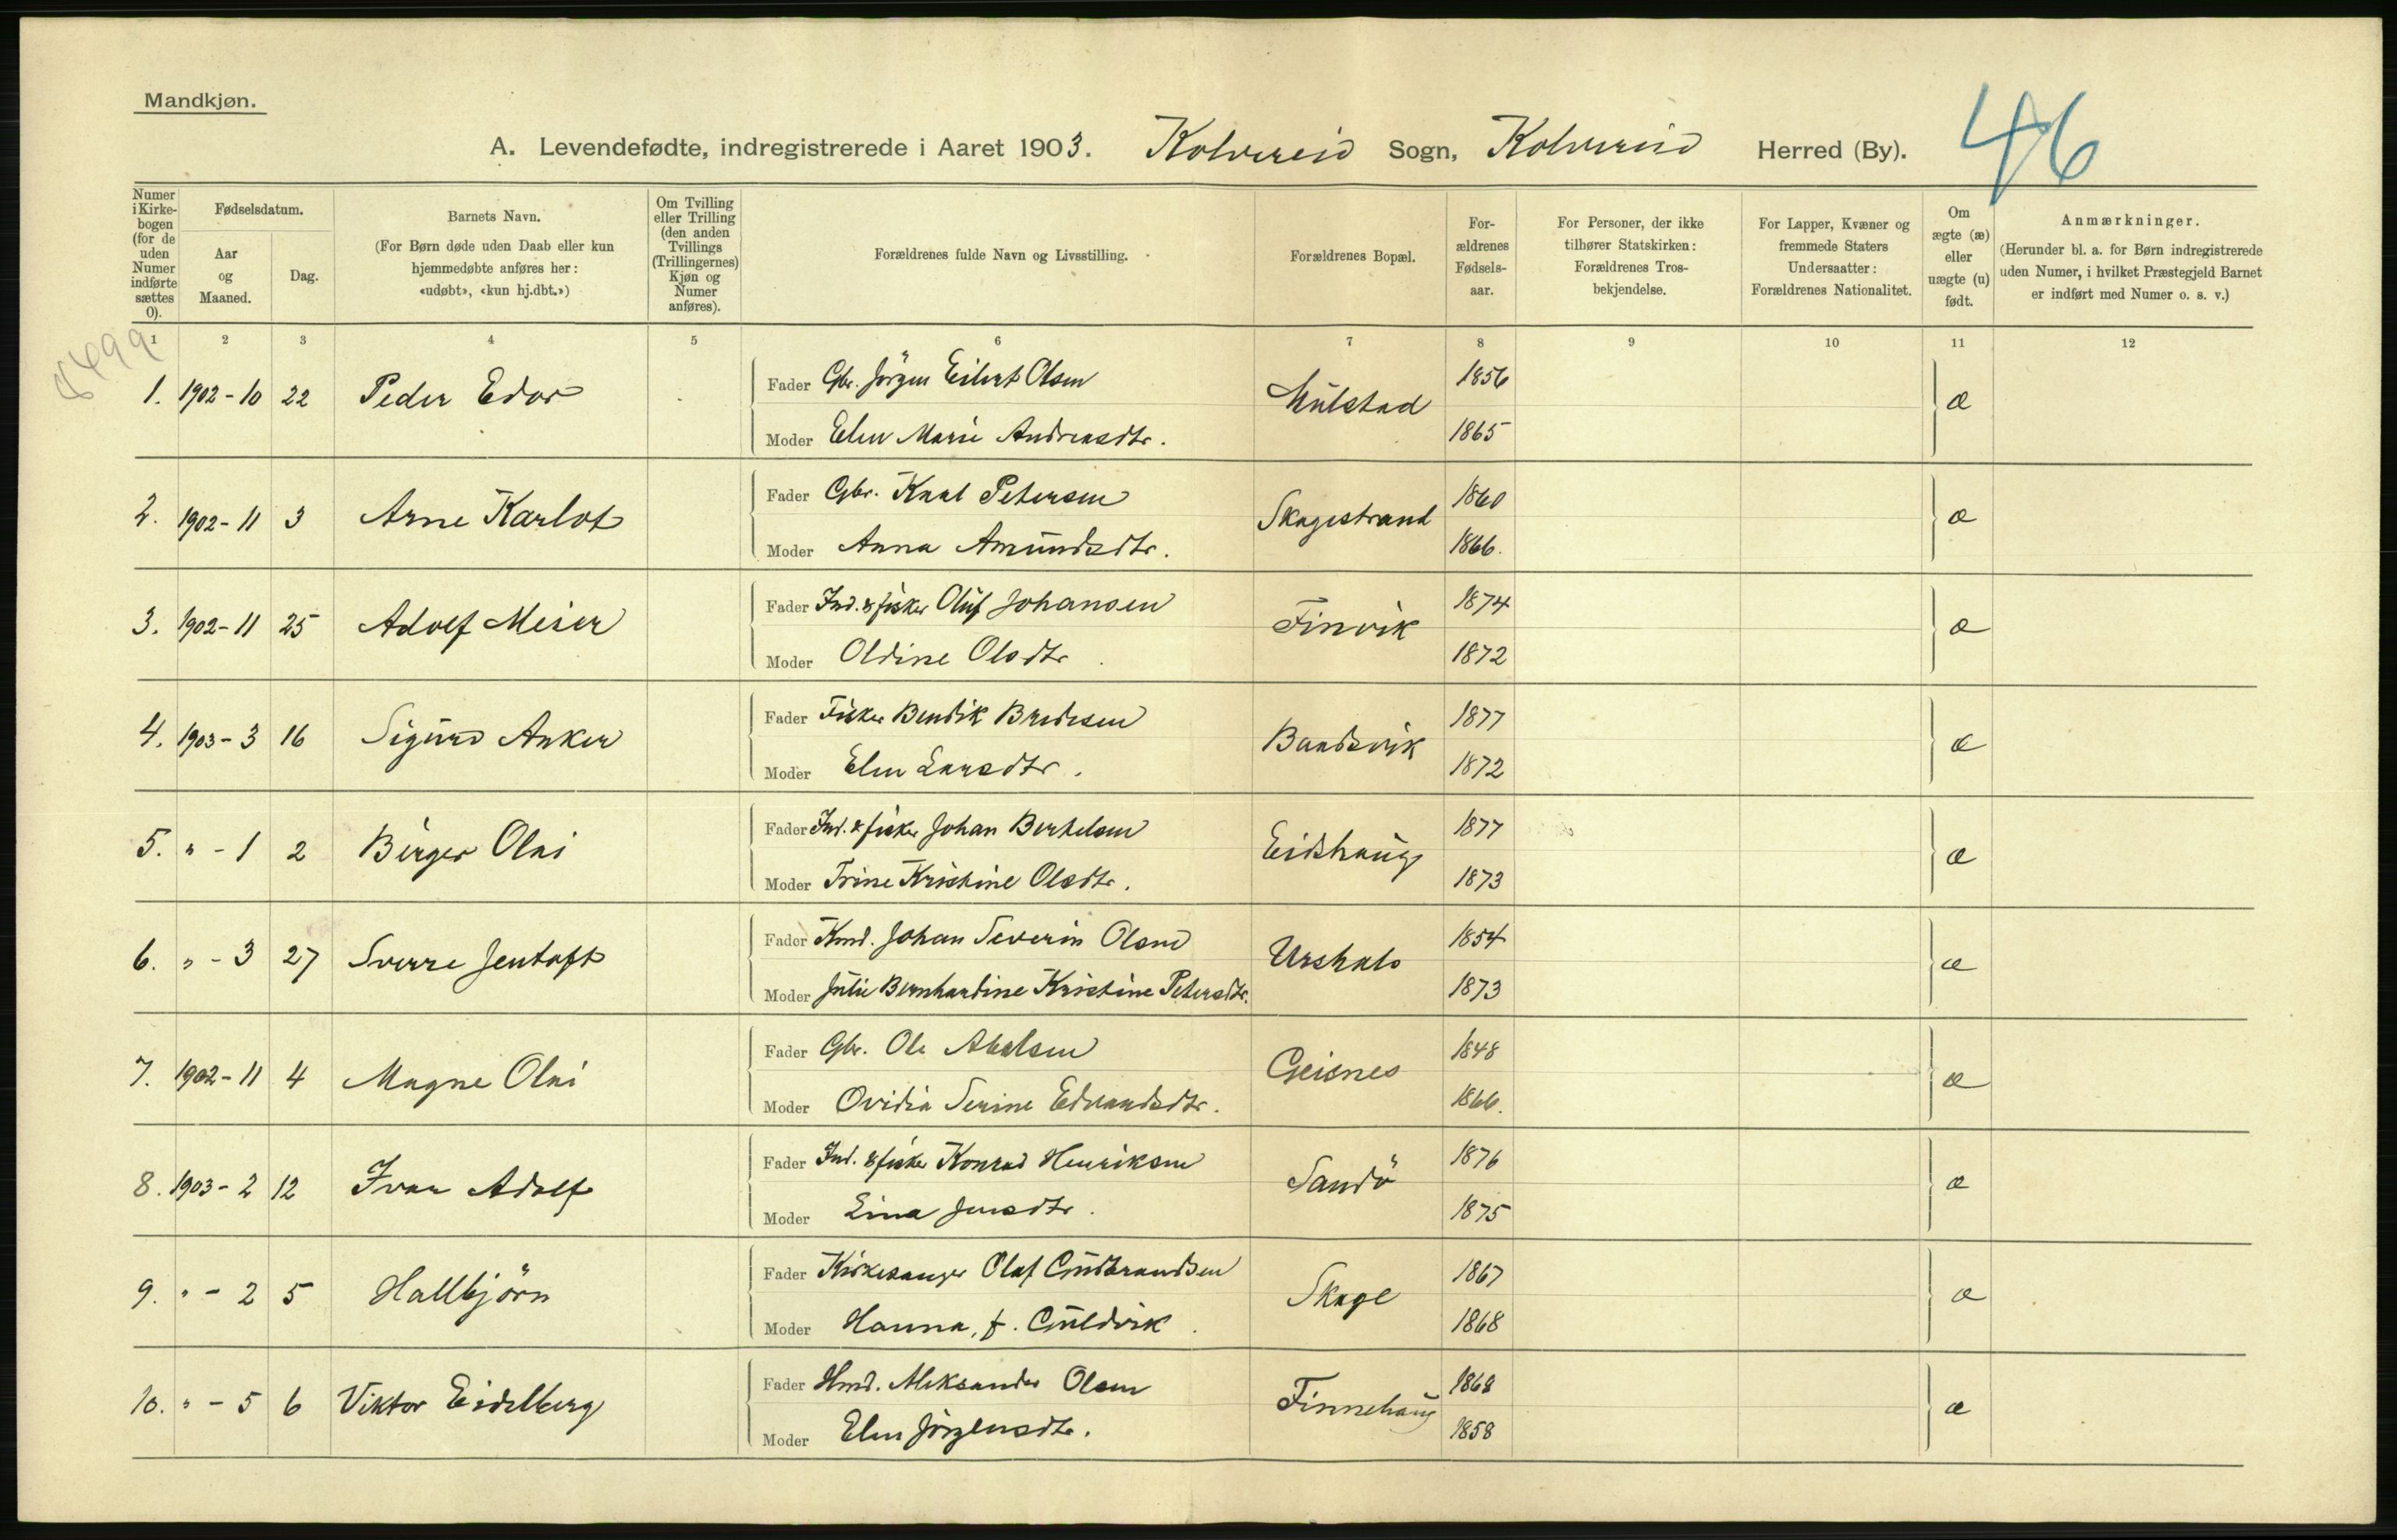 Mandkjøn.
46
A. Levendefødte, indregistrerede i Aaret 1903. Kolvereid Sogn, Kolvereid Herred (By).
Numer i Kirkebogen (for de uden Numer indførte sættes 0).
Fødselsdatum.
Aar og Maaned.
Dag.
Barnets Navn.
(For Børn døde uden Daab eller kun hjemmedøbte anføres her: «udøbt», «kun hj.dbt.»)
Om Tvilling eller Trilling (den anden Tvillings (Trillingernes) Kjøn og Numer anføres).
Forældrenes fulde Navn og Livsstilling.
Forældrenes Bopæl.
Forældrenes Fødselsaar.
For Personer, der ikke tilhører Statskirken: Forældrenes Trosbekjendelse.
For Lapper, Kvæner og fremmede Staters Undersaatter: Forældrenes Nationalitet.
Om ægte (æ) eller uægte (u) født.
Anmærkninger.
(Herunder bl. a. for Børn indregistrerede uden Numer, i hvilket Præstegjeld Barnet er indført med Numer o. s. v.)
1 2 3 4 5 6 7 8 9 10 11 12
1. 1902-10 22 Peder Edor Fader Gbr. Jörgen Eilert Olsen 1856 æ
Moder Elen Marie Andreasdtr. 1865
2. 1902-11 3 Arne Karlot Fader Gbr. Karl Petersen Skagestrand 1860 æ
Moder Anna Amundsdtr. 1866.
3. 1902-11 25 Adolf Meier Fader Ind. & fisker Oluf Johansen Finvik 1874 æ
Moder Oldine Olsdtr. 1872
4. 1903-3 16 Sigurd Anker Fader Fisker Bendik Bredesen Bandsvik 1877 æ
Moder Elen Larsdtr. 1872
5. " - 1 2 Birger Olai Fader Ind. & fisker Johan Bertelsen Eidshaug 1877 æ
Moder Trine Kristine Olsdtr. 1873
6. " - 3 27 Sverre Jentoft Fader Kmd. Johan Severin Olsen 1854 æ
Moder Julie Bernhardine Kristine Petersdtr. 1873
7. 1902-11 4 Magne Olai Fader Gbr. Ole Abelsen Geisnes 1848 æ
Moder Ovidia Serine Edvardsdtr. 1866.
8. 1903-2 12 Ivar Adolf Fader Ind. & fisker Konrad Henriksen Sandö 1876 æ
Moder Lina Jensdtr. 1875
9. " - 2 5 Hallbjörn Fader Kirkesanger Olaf Gudbrandsen Skage 1867 æ
Moder Hanna, f. Guldvik. 1868
10. " - 5 6 Viktor Eidelberg Fader Hmd. Aleksander Olsen Finnehaug 1868 æ
Moder Elen Jörgensdtr. 1858